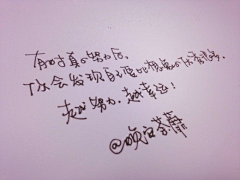 有时真的努力后,
你会发现自己要比想象的优秀很多。
越努力,越幸运!
@晚安